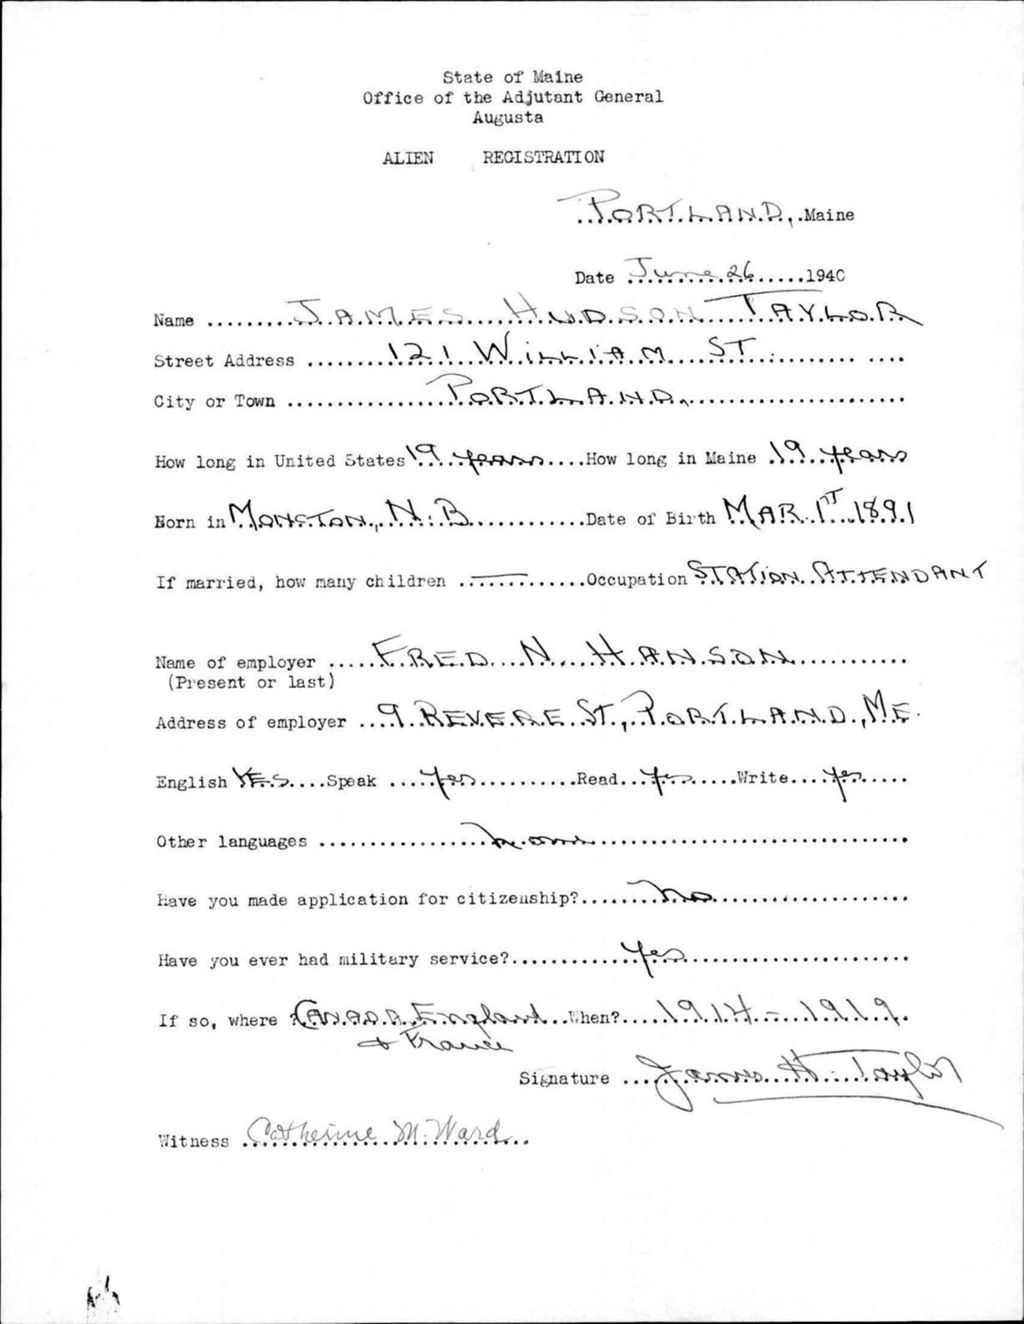 State of Maine
Office of the Adjutant General
Augusta
ALIEN REGISTRATION
PORTLAND, Maine
Date June 26 1940
Name JAMES HUDSON TAYLOR
Street Address 121 WILLIAM ST.
City or Town PORTLAND.
How long in United States 19 years How long in Maine 19 years
Born in MONCTON, N.B. Date of Birth MAR. 1ST 1891
If married, how many children — Occupation STATION ATTENDANT
Name of employer FRED N. HANSON
(Present or last)
Address of employer 9 REVERE ST., PORTLAND, ME.
English YES Speak Yes Read Yes Write Yes
Other languages none
Have you made application for citizenship? No
Have you ever had military service? Yes
If so, where? CANADA, England When? 1914 - 1919.
& France
Signature James H. Taylor
Witness Catherine M. Ward